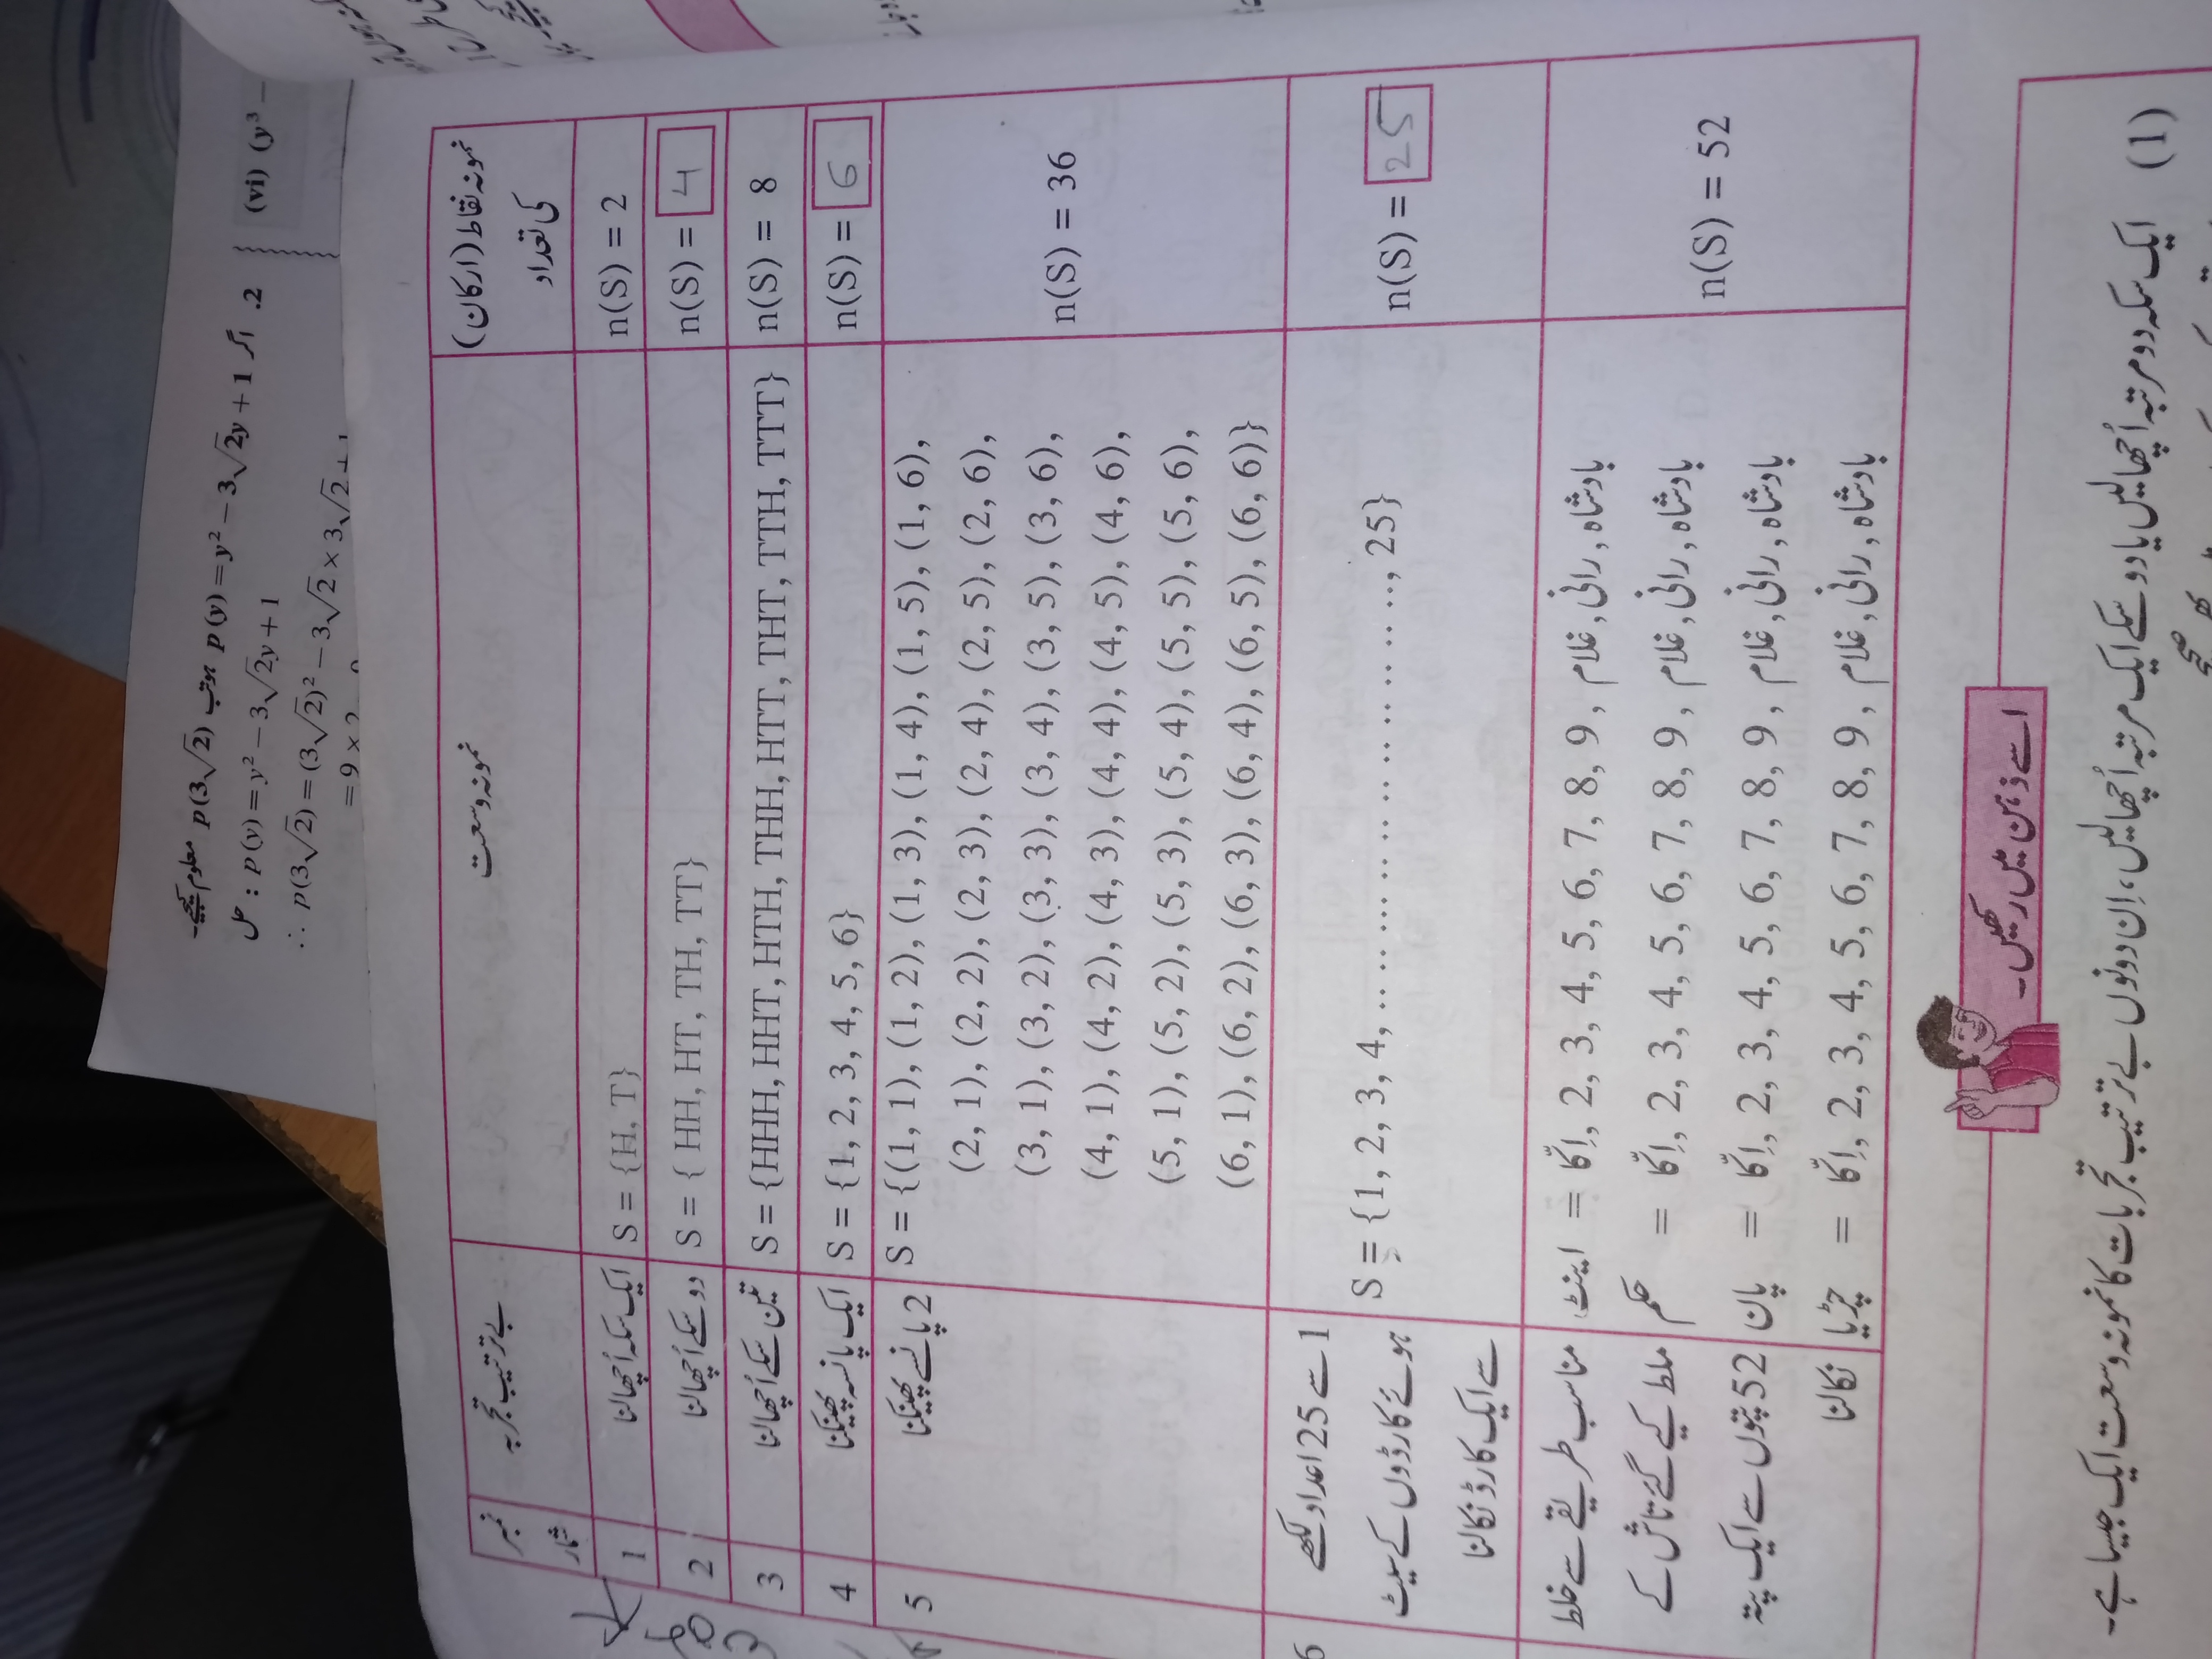 معلوم کیجیے۔ p(3√2) ہو تب p(y)=y² – 3√2y + 1 اگر .2
حل : p(y)=y² – 3√2y + 1
∴ p(3√2)=(3√2)² – 3√2 × 3√2 + 1
(vi) (y³ –
نمبر شمار
بے ترتیب تجربہ
نمونہ وسعت
نمونہ نقاط (ارکان) کی تعداد
1
ایک سکہ اُچھالنا
S = {H, T}
n(S) = 2
2
دو سکے اُچھالنا
S = { HH, HT, TH, TT}
n(S) = 4
3
تین سکے اُچھالنا
S = {HHH, HHT, HTH, THH, HTT, THT, TTH, TTT}
n(S) = 8
4
ایک پانسہ پھینکنا
S = {1, 2, 3, 4, 5, 6}
n(S) = 6
5
2 پانسے پھینکنا
S = {(1, 1), (1, 2), (1, 3), (1, 4), (1, 5), (1, 6),
(2, 1), (2, 2), (2, 3), (2, 4), (2, 5), (2, 6),
(3, 1), (3, 2), (3, 3), (3, 4), (3, 5), (3, 6),
(4, 1), (4, 2), (4, 3), (4, 4), (4, 5), (4, 6),
(5, 1), (5, 2), (5, 3), (5, 4), (5, 5), (5, 6),
(6, 1), (6, 2), (6, 3), (6, 4), (6, 5), (6, 6)}
n(S) = 36
6
1 سے 25 اعداد لکھے
ہوئے کارڈوں کے سیٹ
سے ایک کارڈ نکالنا
S = {1, 2, 3, 4, ........................, 25}
n(S) = 25
مناسب طریقے سے خلط
ملط کیے گئے تاش کے
52 پتوں سے ایک پتہ
نکالنا
اینٹ = اِکّا, 2, 3, 4, 5, 6, 7, 8, 9, غلام, رانی, بادشاہ
حکم = اِکّا, 2, 3, 4, 5, 6, 7, 8, 9, غلام, رانی, بادشاہ
پان = اِکّا, 2, 3, 4, 5, 6, 7, 8, 9, غلام, رانی, بادشاہ
چڑیا = اِکّا, 2, 3, 4, 5, 6, 7, 8, 9, غلام, رانی, بادشاہ
n(S) = 52
اسے ذہن میں رکھیں۔
(1) ایک سکہ دو مرتبہ اُچھالیں یا دو سکے ایک مرتبہ اُچھالیں، اِن دونوں بے ترتیب تجربات کا نمونہ وسعت ایک جیسا ہے۔